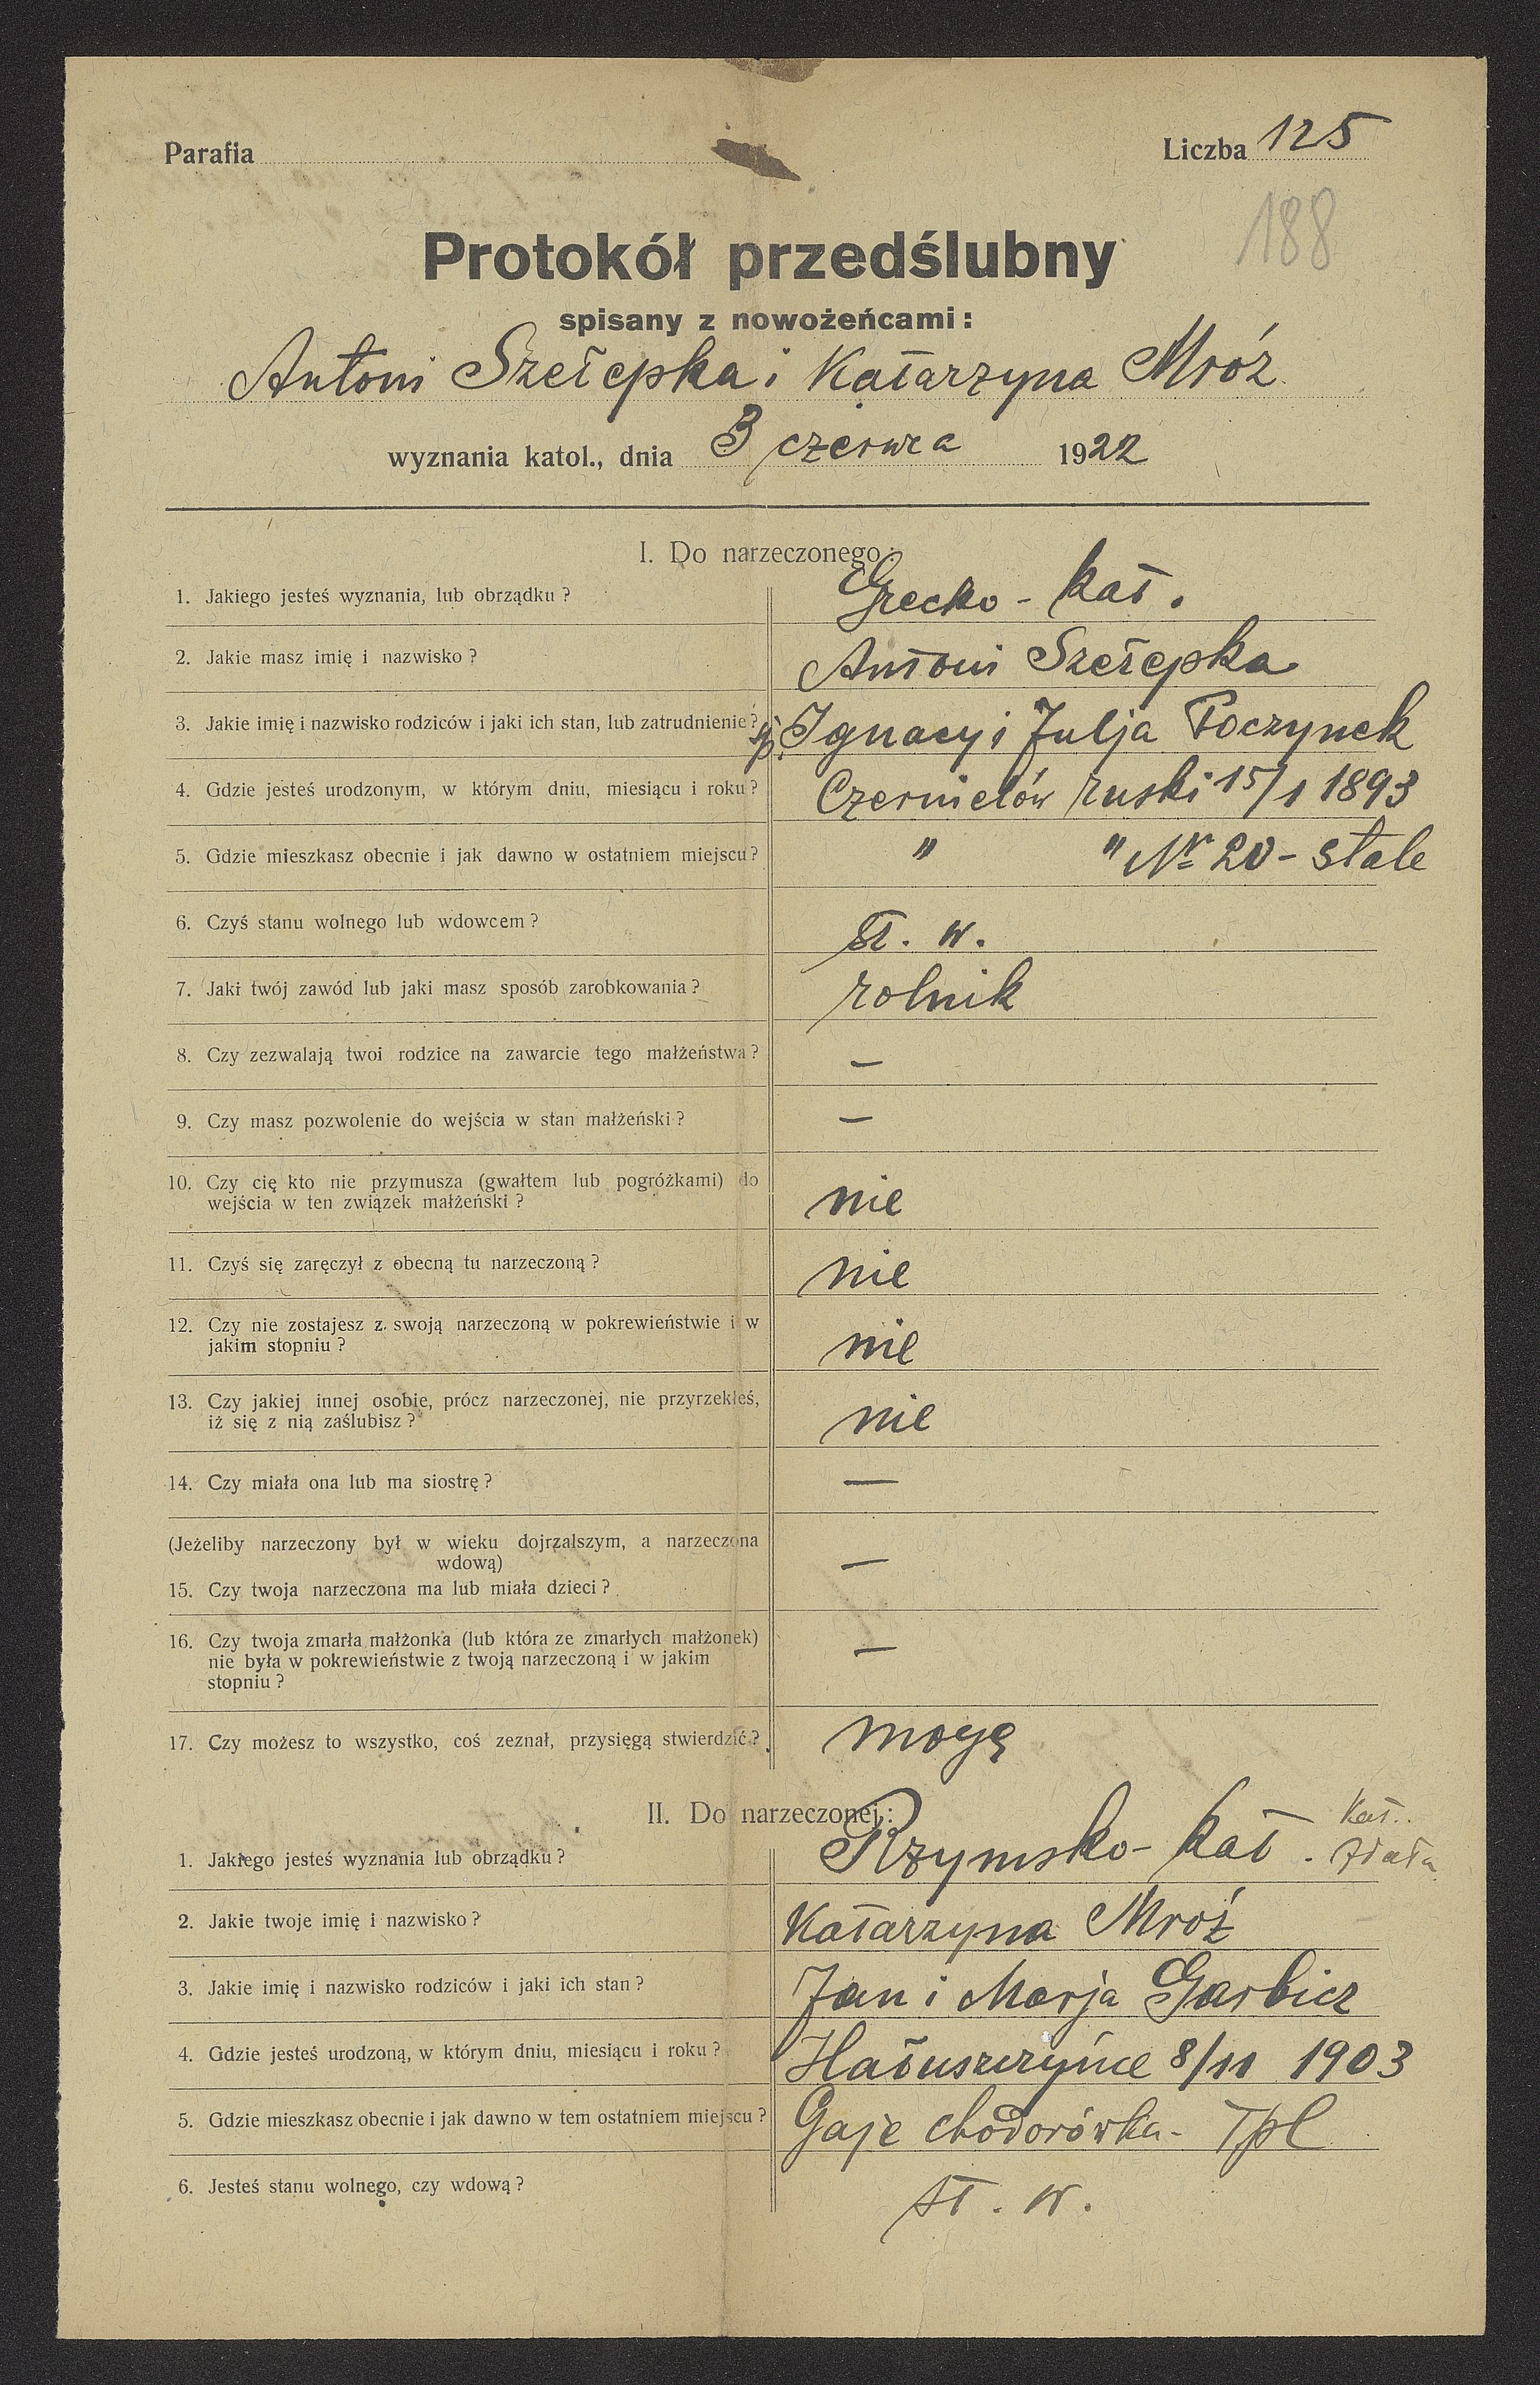 Parafia
Liczba 125
188
Protokół przedślubny
spisany z nowożeńcami:
Antoni Szełepka i Katarzyna Mróz
wyznania katol., dnia 3 czerwca 1922
I. Do narzeczonego:
1. Jakiego jesteś wyznania, lub obrządku? Grecko-kat.
2. Jakie masz imię i nazwisko? Antoni Szełepka
3. Jakie imię i nazwisko rodziców i jaki ich stan, lub zatrudnienie? Ignacy i Julja Poczynek
4. Gdzie jesteś urodzonym, w którym dniu, miesiącu i roku? Czernielów ruski 15/1 1893
5. Gdzie mieszkasz obecnie i jak dawno w ostatniem miejscu? " " Nr 20 - stale
6. Czyś stanu wolnego lub wdowcem? st. w.
7. Jaki twój zawód lub jaki masz sposób zarobkowania? rolnik
8. Czy zezwalają twoi rodzice na zawarcie tego małżeństwa? —
9. Czy masz pozwolenie do wejścia w stan małżeński? —
10. Czy cię kto nie przymusza (gwałtem lub pogróżkami) do
wejścia w ten związek małżeński? nie
11. Czyś się zaręczył z obecną tu narzeczoną? nie
12. Czy nie zostajesz z swoją narzeczoną w pokrewieństwie i w
jakim stopniu? nie
13. Czy jakiej innej osobie, prócz narzeczonej, nie przyrzekłeś,
iż się z nią zaślubisz? nie
14. Czy miała ona lub ma siostrę? —
(Jeżeliby narzeczony był w wieku dojrzalszym, a narzeczona
wdową) —
15. Czy twoja narzeczona ma lub miała dzieci?
16. Czy twoja zmarła małżonka (lub która ze zmarłych małżonek)
nie była w pokrewieństwie z twoją narzeczoną i w jakim —
stopniu?
17. Czy możesz to wszystko, coś zeznał, przysięgą stwierdzić? mogę
II. Do narzeczonej:
Kat.
1. Jakiego jesteś wyznania lub obrządku? Rzymsko-kat. zdała
2. Jakie twoje imię i nazwisko? Katarzyna Mróz
3. Jakie imię i nazwisko rodziców i jaki ich stan? Jan i Marja Garbicz
4. Gdzie jesteś urodzoną, w którym dniu, miesiącu i roku? Hałuszczyńce 8/11 1903
5. Gdzie mieszkasz obecnie i jak dawno w tem ostatniem miejscu? Gaje chodorówka - Tpl
6. Jesteś stanu wolnego, czy wdową? st. w.